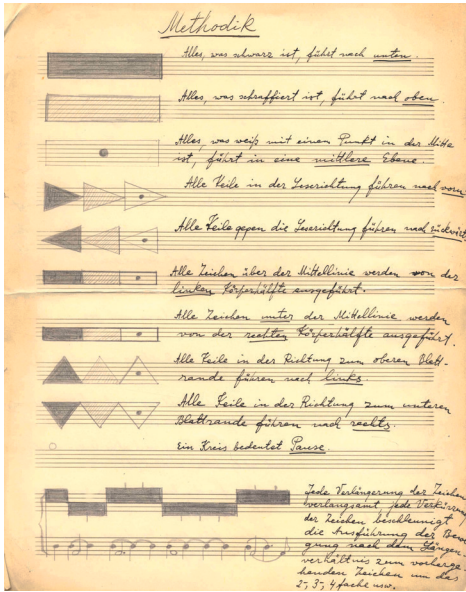 Methodik
Alles, was schwarz ist, führt nach unten.
Alles, was schraffiert ist, führt nach oben.
Alles, was weiß mit einem Punkt in der Mitte
ist, führt in eine mittlere Ebene.
Alle Keile in der Leserichtung führen nach vorn
Alle Keile gegen die Leserichtung führen nach rückwärts
Alle Zeichen über der Mittellinie werden von der
linken Körperhälfte ausgeführt.
Alle Zeichen unter der Mittellinie werden
von der rechten Körperhälfte ausgeführt.
Alle Keile in der Richtung zum oberen Blatt-
rande führen nach links.
Alle Keile in der Richtung zum unteren
Blattrande führen nach rechts.
Ein Kreis bedeutet Pause.
Jede Verlängerung der Zeichen
verlangsamt, jede Verkürzung
der Zeichen beschleunigt
die Ausführung der Bewe-
gung nach dem Längen-
verhältnis zum vorherge-
henden Zeichen um das
2-, 3-, 4 fache usw.